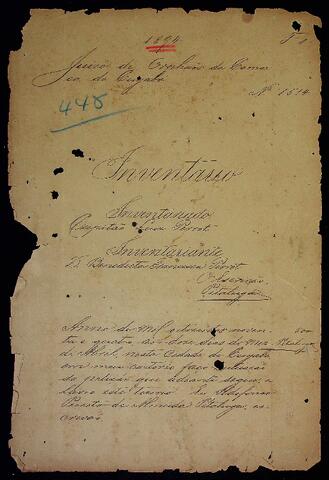 1894
Juizo de Orphãos da Comar
ca de Cuyabá
Nº 1514
448
Inventario
Inventariando
Capitão Perrot
Inventariante
D. Benedicta Perrot
Escrivão
Pitaluga
Anno de Mil oitocentos noven
ta e quatro, aos doze dias do mez
de Abril, nesta Cidade de Cuyabá
em meu cartorio faço autuação
da petição que adiante segue, e
lavro este termo. Eu Ildefonso
de Almeida Pitaluga, es
crevi